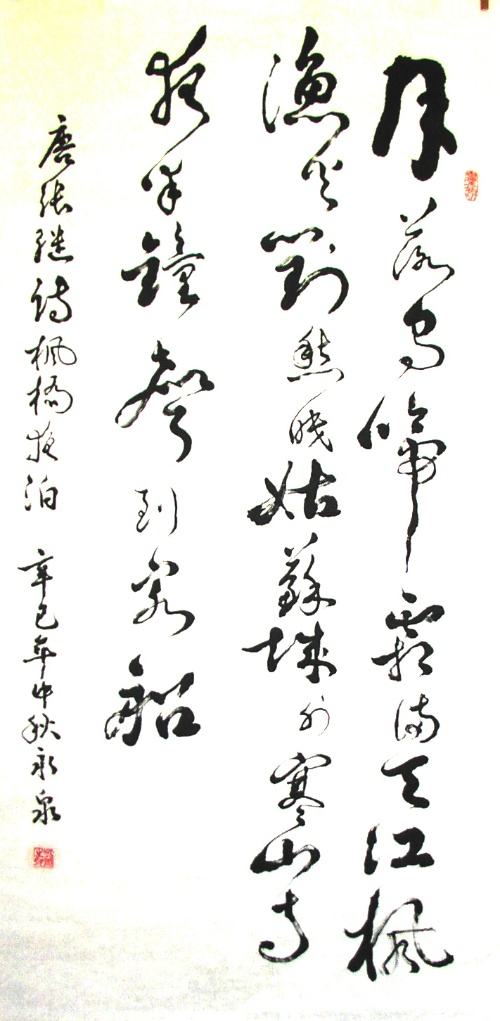 月落乌啼霜满天江枫
渔火对愁眠姑苏城外寒山寺
夜半钟声到客船
唐张继诗枫桥夜泊 辛巳年中秋永泉